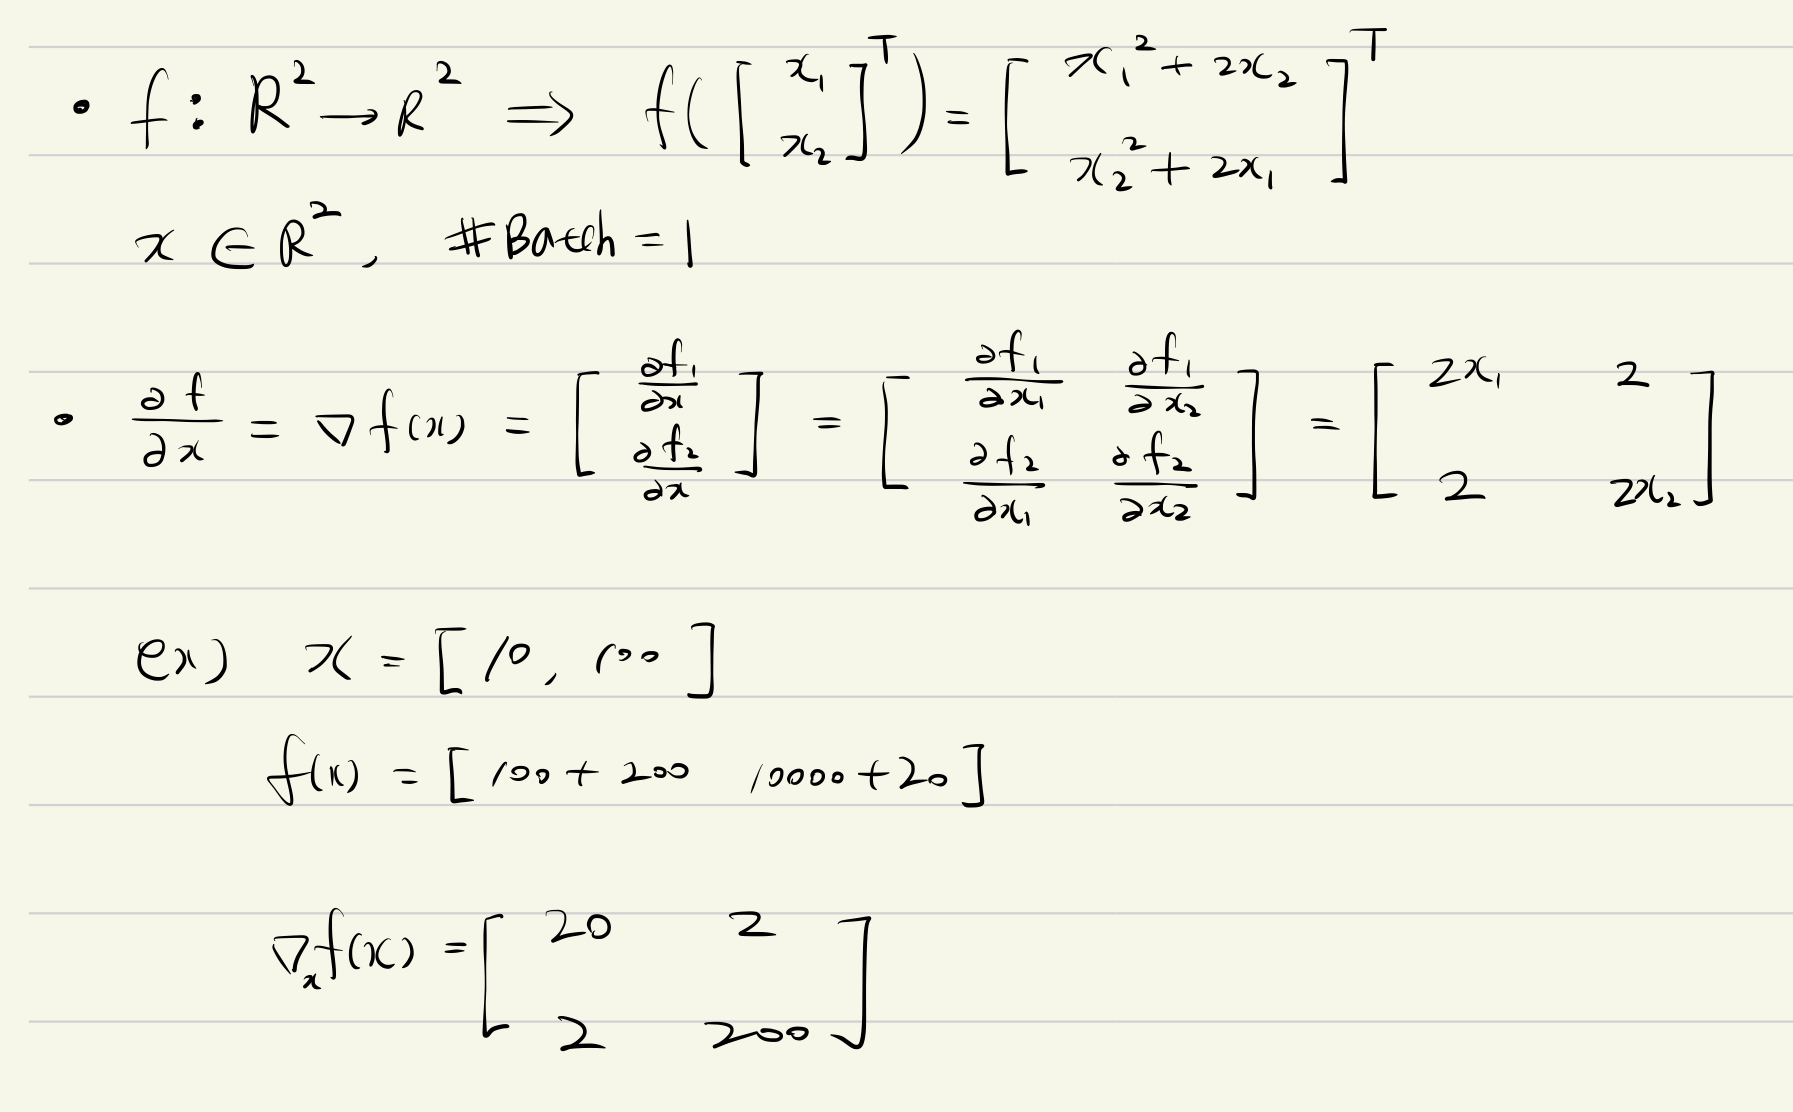 • f : R² → R² ⇒ f([x₁ x₂]ᵀ) = [x₁² + 2x₂  x₂² + 2x₁]ᵀ
x ∈ R², #Batch = 1
• ∂f/∂x = ∇f(x) = [∂f₁/∂x ; ∂f₂/∂x] = [∂f₁/∂x₁ ∂f₁/∂x₂ ; ∂f₂/∂x₁ ∂f₂/∂x₂] = [2x₁ 2 ; 2 2x₂]
ex) x = [10, 100]
f(x) = [100 + 200  10000 + 20]
∇ₓf(x) = [20 2 ; 2 200]